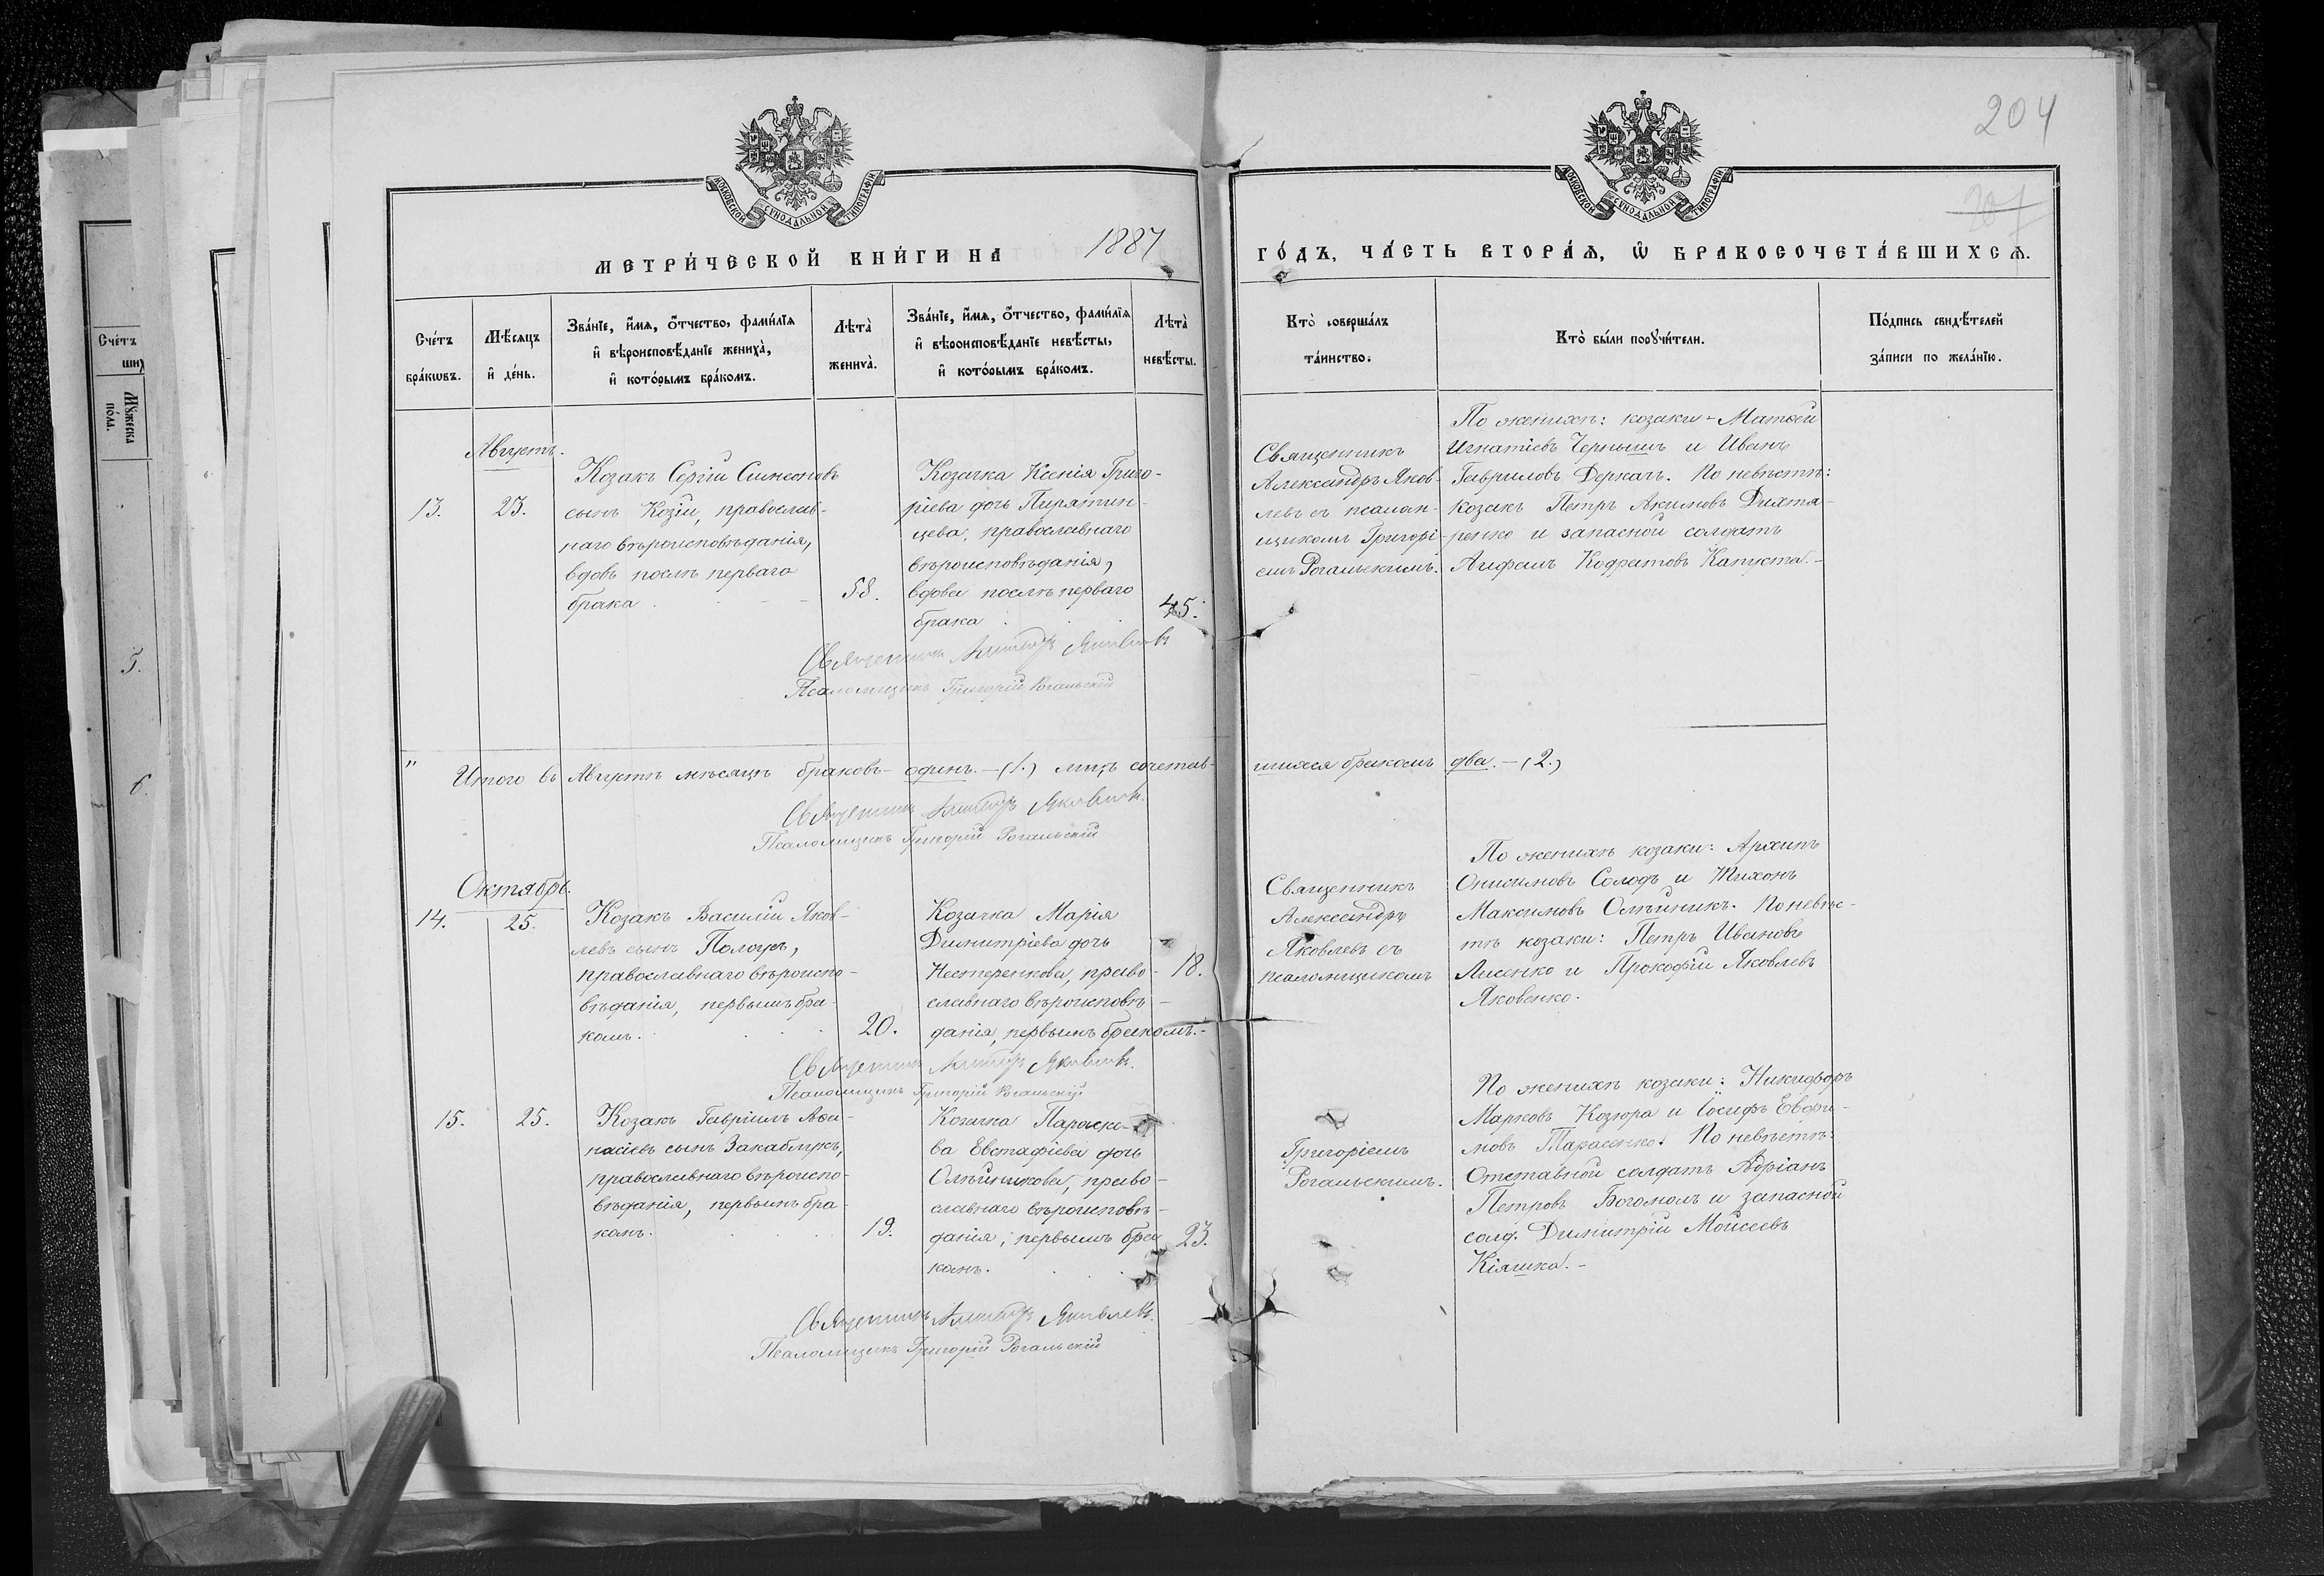 204
207
МОСКОВСКОЙ СѴНОДАЛЬНОЙ ТИПОГРАФІИ
МОСКОВСКОЙ СѴНОДАЛЬНОЙ ТИПОГРАФІИ
МЕТРИ́ЧЕСКОЙ КНИ́ГИ НА 1887
ГО́ДЪ, ЧА́СТЬ ВТОРА́Ѧ, Ѡ҆ БРАКОСОЧЕТА́ВШИХСѦ.
Сче́тъ
бра́кѡвъ.
Мѣ́сяцъ
и҆ де́нь.
Зва́нїе, и҆́мѧ, ѻ҆́тчество, фами́лїѧ
и҆ вѣроисповѣ́данїе жениха̀,
и҆ кото́рымъ бра́комъ.
Лѣта̀
жениха̀.
Зва́нїе, и҆́мѧ, ѻ҆́тчество, фами́лїѧ
и҆ вѣроисповѣ́данїе невѣ́сты,
и҆ кото́рымъ бра́комъ.
Лѣта̀
невѣ́сты.
Кто̀ соверша́лъ
та́инство.
Кто̀ бы́ли порꙋчи́тели.
По́дпись свидѣ́телей
за́писи по жела́нїю.
Сче́тъ
Мꙋ́жеска
по́ла.
5.
6.
Августъ.
13.
23.
Козакъ Сергій Симеоновъ
сынъ Козій, православ-
наго вѣроисповѣданія,
вдовъ послѣ перваго
брака
58.
Козачка Ксенія Григо-
ріева дочь Пирятин-
цева, православнаго
вѣроисповѣданія,
вдова послѣ перваго
брака
45.
Священникъ
Александръ Яков-
левъ съ псалом-
щикомъ Григорі-
емъ Рогальскимъ.
По женихѣ: козаки - Матѳей
Игнатіевъ Чернышъ и Иванъ
Гавриловъ Деркачъ. По невѣстѣ:
козакъ Петръ Акимовъ Дихтя-
ренко и запасной солдатъ
Капуста.-
Священникъ Александръ Яковлевъ
Псаломщикъ Григорій Рогальскій
" Итого въ Августѣ мѣсяцѣ браковъ - одинъ. - (1.) лицъ сочетав-
шихся бракомъ два. - (2.)
Священникъ Александръ Яковлевъ.
Псаломщикъ Григорій Рогальскій
Октябрь.
14.
25.
Козакъ Василій Яков-
левъ сынъ
православнаго вѣроиспо-
вѣданія, первымъ бра-
комъ.
20.
Козачка Марія
Димитріева дочь
Нестеренкова, право-
славнаго вѣроисповѣ-
данія, первымъ бракомъ.-
18.
Священникъ
Александръ
Яковлевъ съ
псаломщикомъ
По женихѣ козаки: Архипъ
Онисимовъ Солодъ и Тихонъ
Максимовъ Олѣйникъ. По невѣс-
тѣ козаки: Петръ Ивановъ
Лисенко и Прокофій Яковлевъ
Яковенко.
Священникъ Александръ Яковлевъ.
Псаломщикъ Григорій Рогальскій
15.
25.
Козакъ Гавріилъ Аѳа-
насіевъ сынъ Закаблукъ,
православнаго вѣроиспо-
вѣданія, первымъ бра-
комъ.
19.
Козачка Параске-
ва Евстафіева дочь
Олѣйникова, право-
славнаго вѣроисповѣ-
данія, первымъ бра
комъ.
23.
Григоріемъ
Рогальскимъ.
По женихѣ козаки: Никифоръ
Марковъ Козюра и Іосифъ Евфи-
мовъ Тарасенко. По невѣстѣ:
Отставной солдатъ Адріанъ
Петровъ Богомолъ и запасной
солд. Димитрій Моисеевъ
Кіяшка.-
Священникъ Александръ Яковлевъ.
Псаломщикъ Григорій Рогальскій